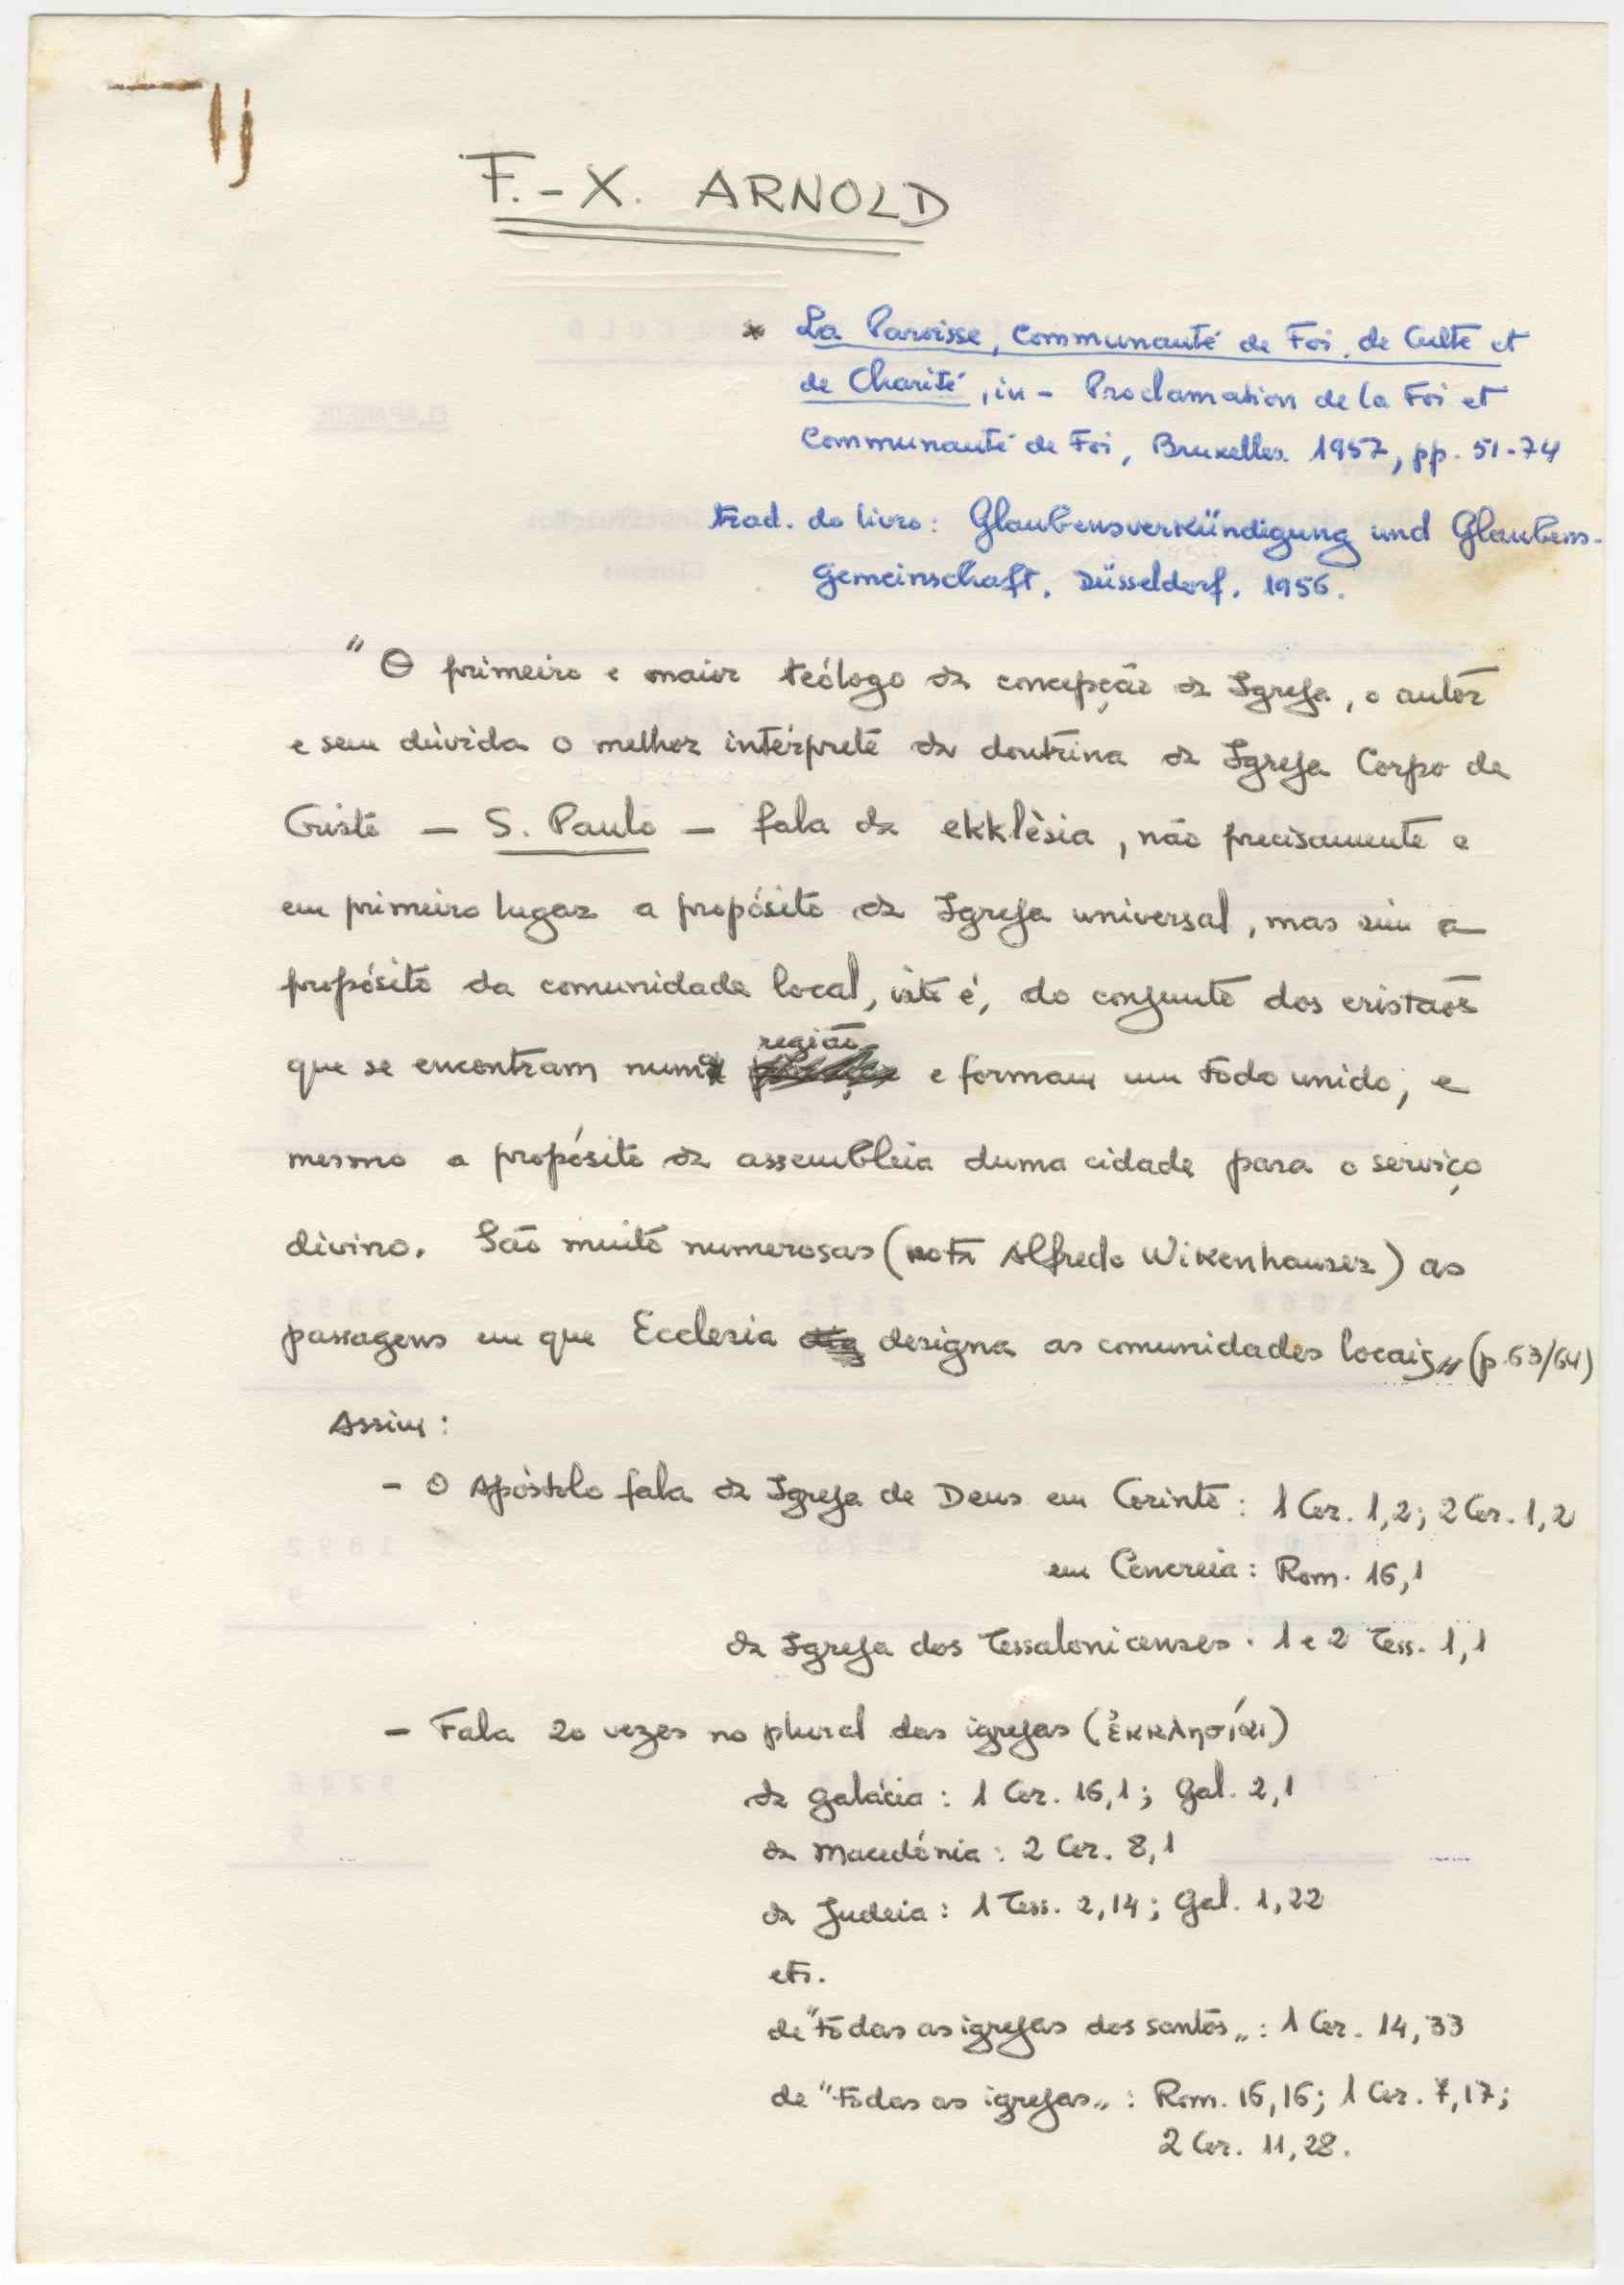 F.-X. ARNOLD
* La Paroisse, Communauté de Foi, de Culte et
de Charité, in - Proclamation de la Foi et
Communauté de Foi, Bruxelles. 1957, pp. 51-74
trad. do livro: Glaubensverkündigung und Glaubens-
gemeinschaft, Düsseldorf, 1956.
"O primeiro e maior teólogo da concepção da Igreja, o autor
e sem dúvida o melhor intérprete da doutrina da Igreja Corpo de
Cristo — S. Paulo — fala da ekklèsia, não precisamente e
em primeiro lugar a propósito da Igreja universal, mas sim a
propósito da comunidade local, isto é, do conjunto dos cristãos
que se encontram numa região e formam um todo unido, e
mesmo a propósito da assembleia duma cidade para o serviço
divino. São muito numerosas (nota Alfredo Wikenhauser) as
passagens em que Ecclesia designa as comunidades locais„ (p.63/64)
Assim:
- O Apóstolo fala da Igreja de Deus em Corinto: 1 Cor. 1,2; 2 Cor. 1,2
em Cencreia: Rom. 16,1
da Igreja dos Tessalonicenses. 1 e 2 Tess. 1,1
- Fala 20 vezes no plural das igrejas (ἐκκλησίαι)
da Galácia: 1 Cor. 16,1; Gal. 2,1
da Macedónia: 2 Cor. 8,1
da Judeia: 1 Tess. 2,14; Gal. 1,22
etc.
de "todas as igrejas dos santos„: 1 Cor. 14,33
de "todas as igrejas„: Rom. 16,16; 1 Cor. 7,17;
2 Cor. 11,28.